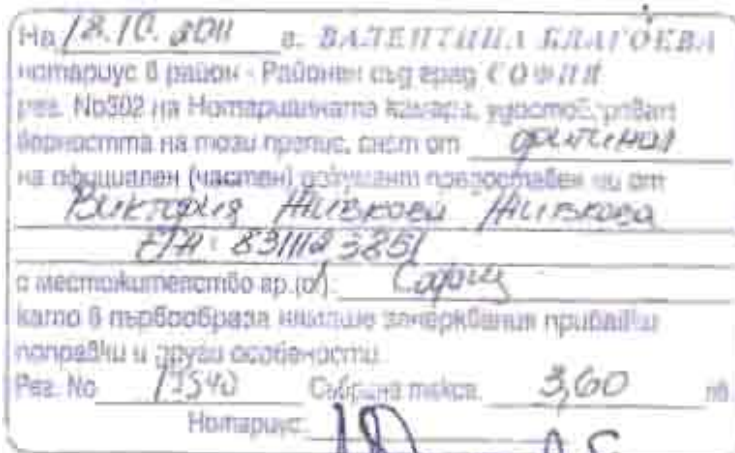 На 18.10.2011 г. ВАЛЕНТИНА БЛАГОЕВА
нотариус в район - Районен съд град СОФИЯ
рег. No302 на Нотариалната камара, удостоверявам
верността на този препис, снет от оригинал
на официален (частен) документ представен ми от
Виктория Живкова Живкова
ЕГН: 8311123851
с местожителство гр.(с) София
като в първообраза нямаше зачерквания прибавки
поправки и други особености.
Рег. No Събрана такса. 3,60 лв
Нотариус: